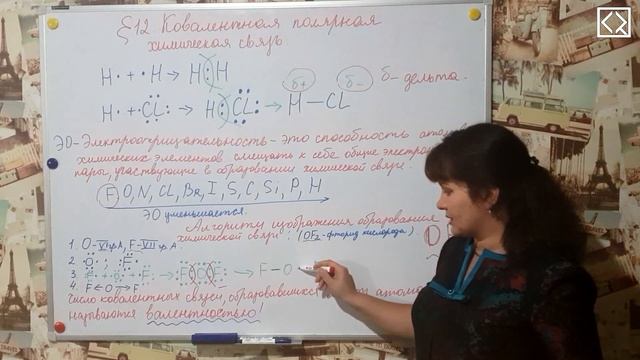 §12 Ковалентная полярная
химическая связь
H· + ·H → H:H
H· + ·CL: → H:CL: → H – CL
δ+ δ– δ – дельта.
ЭО – Электроотрицательность – это способность атомов
химических элементов смещать к себе общие электронные
пары, участвующие в образовании химической связи.
F, O, N, CL, Br, I, S, C, Si, P, H
ЭО уменьшается.
Алгоритм изображения образования
химической связи: (OF₂ – фторид кислорода)
1. O – VI гр A, F – VII гр A
2. O F
3. F → F O F → F – O
4. F ← O → F
Число ковалентных связей, образовавшихся атомом
называются валентностью!